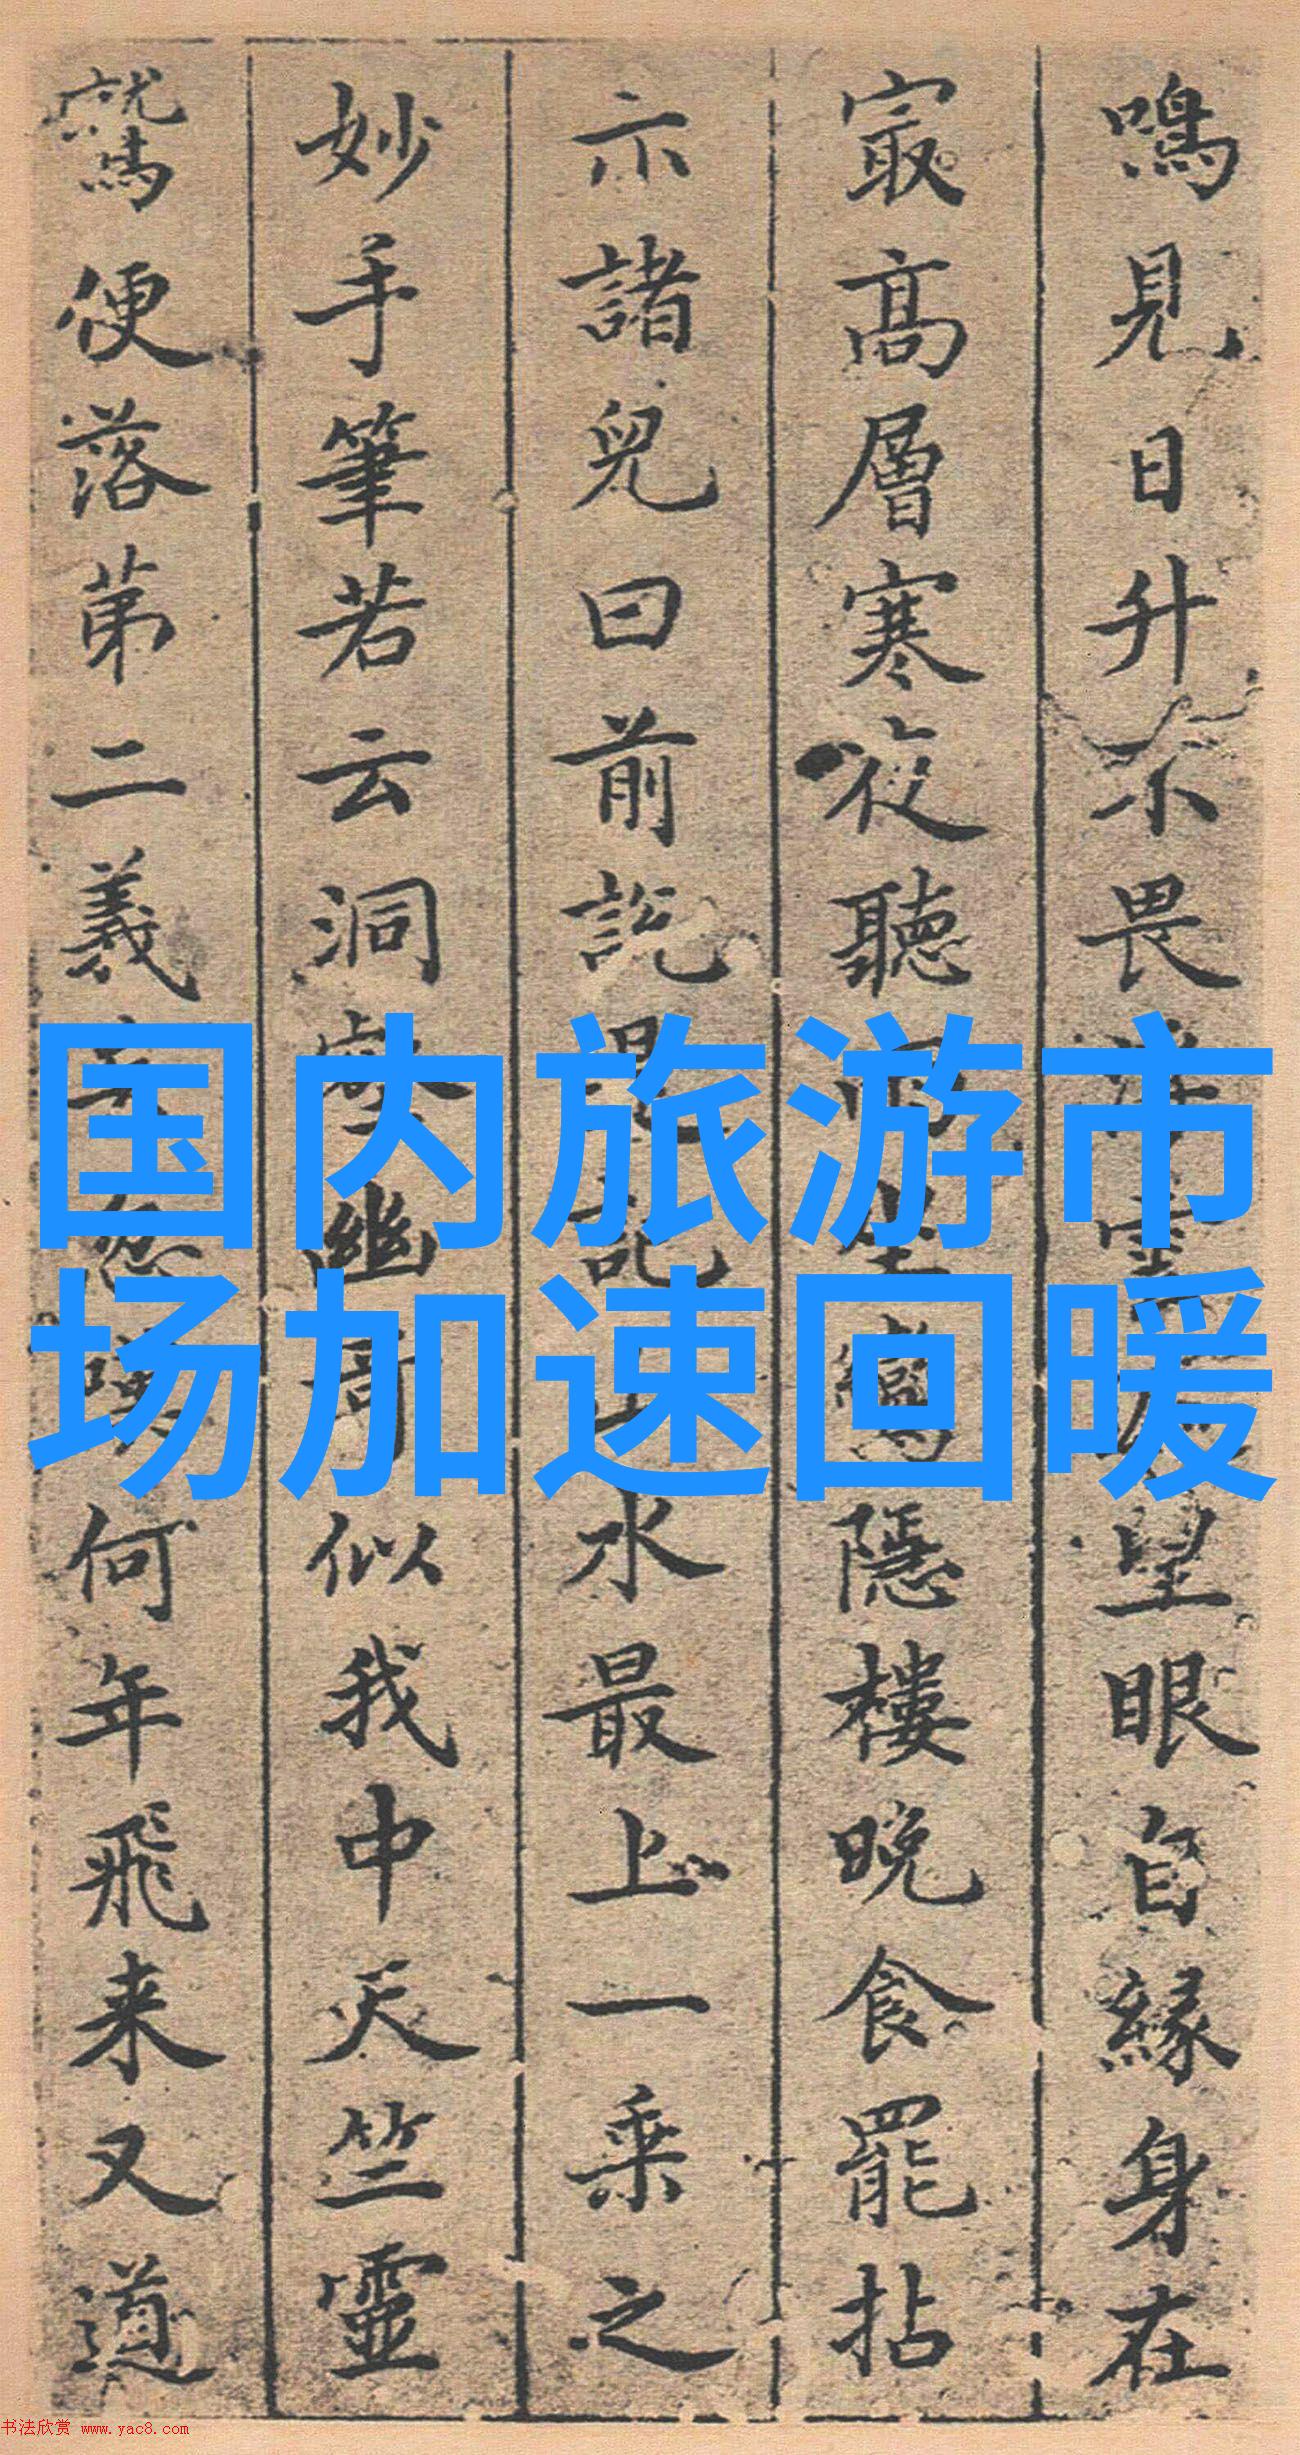 鳴見日升不畏浮雲遮望眼自緣身在
寂高層寒夜聽
隱樓晚食罷拈
示諸兒曰前説
水最上一乘之
妙手筆若云洞
幽奇似我中天竺靈
鷲便落第二義
何年飛来又道
国内旅游市
场加速回暖
书法欣赏 www.yac8.com